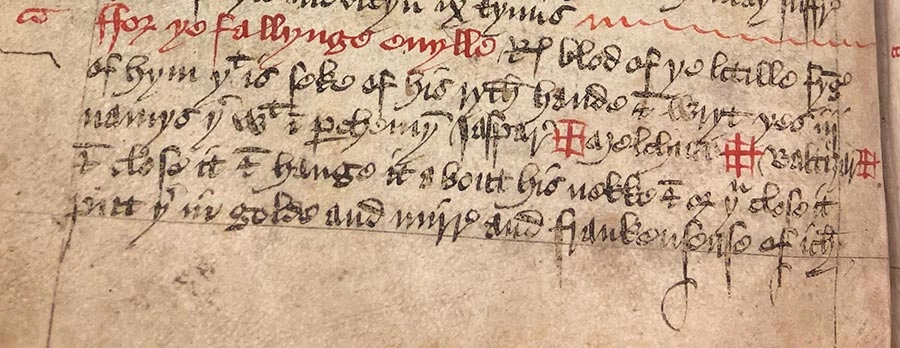 ffor ye fallynge euylle Rx blod of ye lttille fyng
of hym yt is seke of his ryth hande & wryt yes iij
namys yr wt i pchemyn Jaspar ✠ Melchior ✠ Baltizar ✠
& close it & hange it a boutt his nekke & or yu close it
putt yr in golde and mirre and frankensense of ich